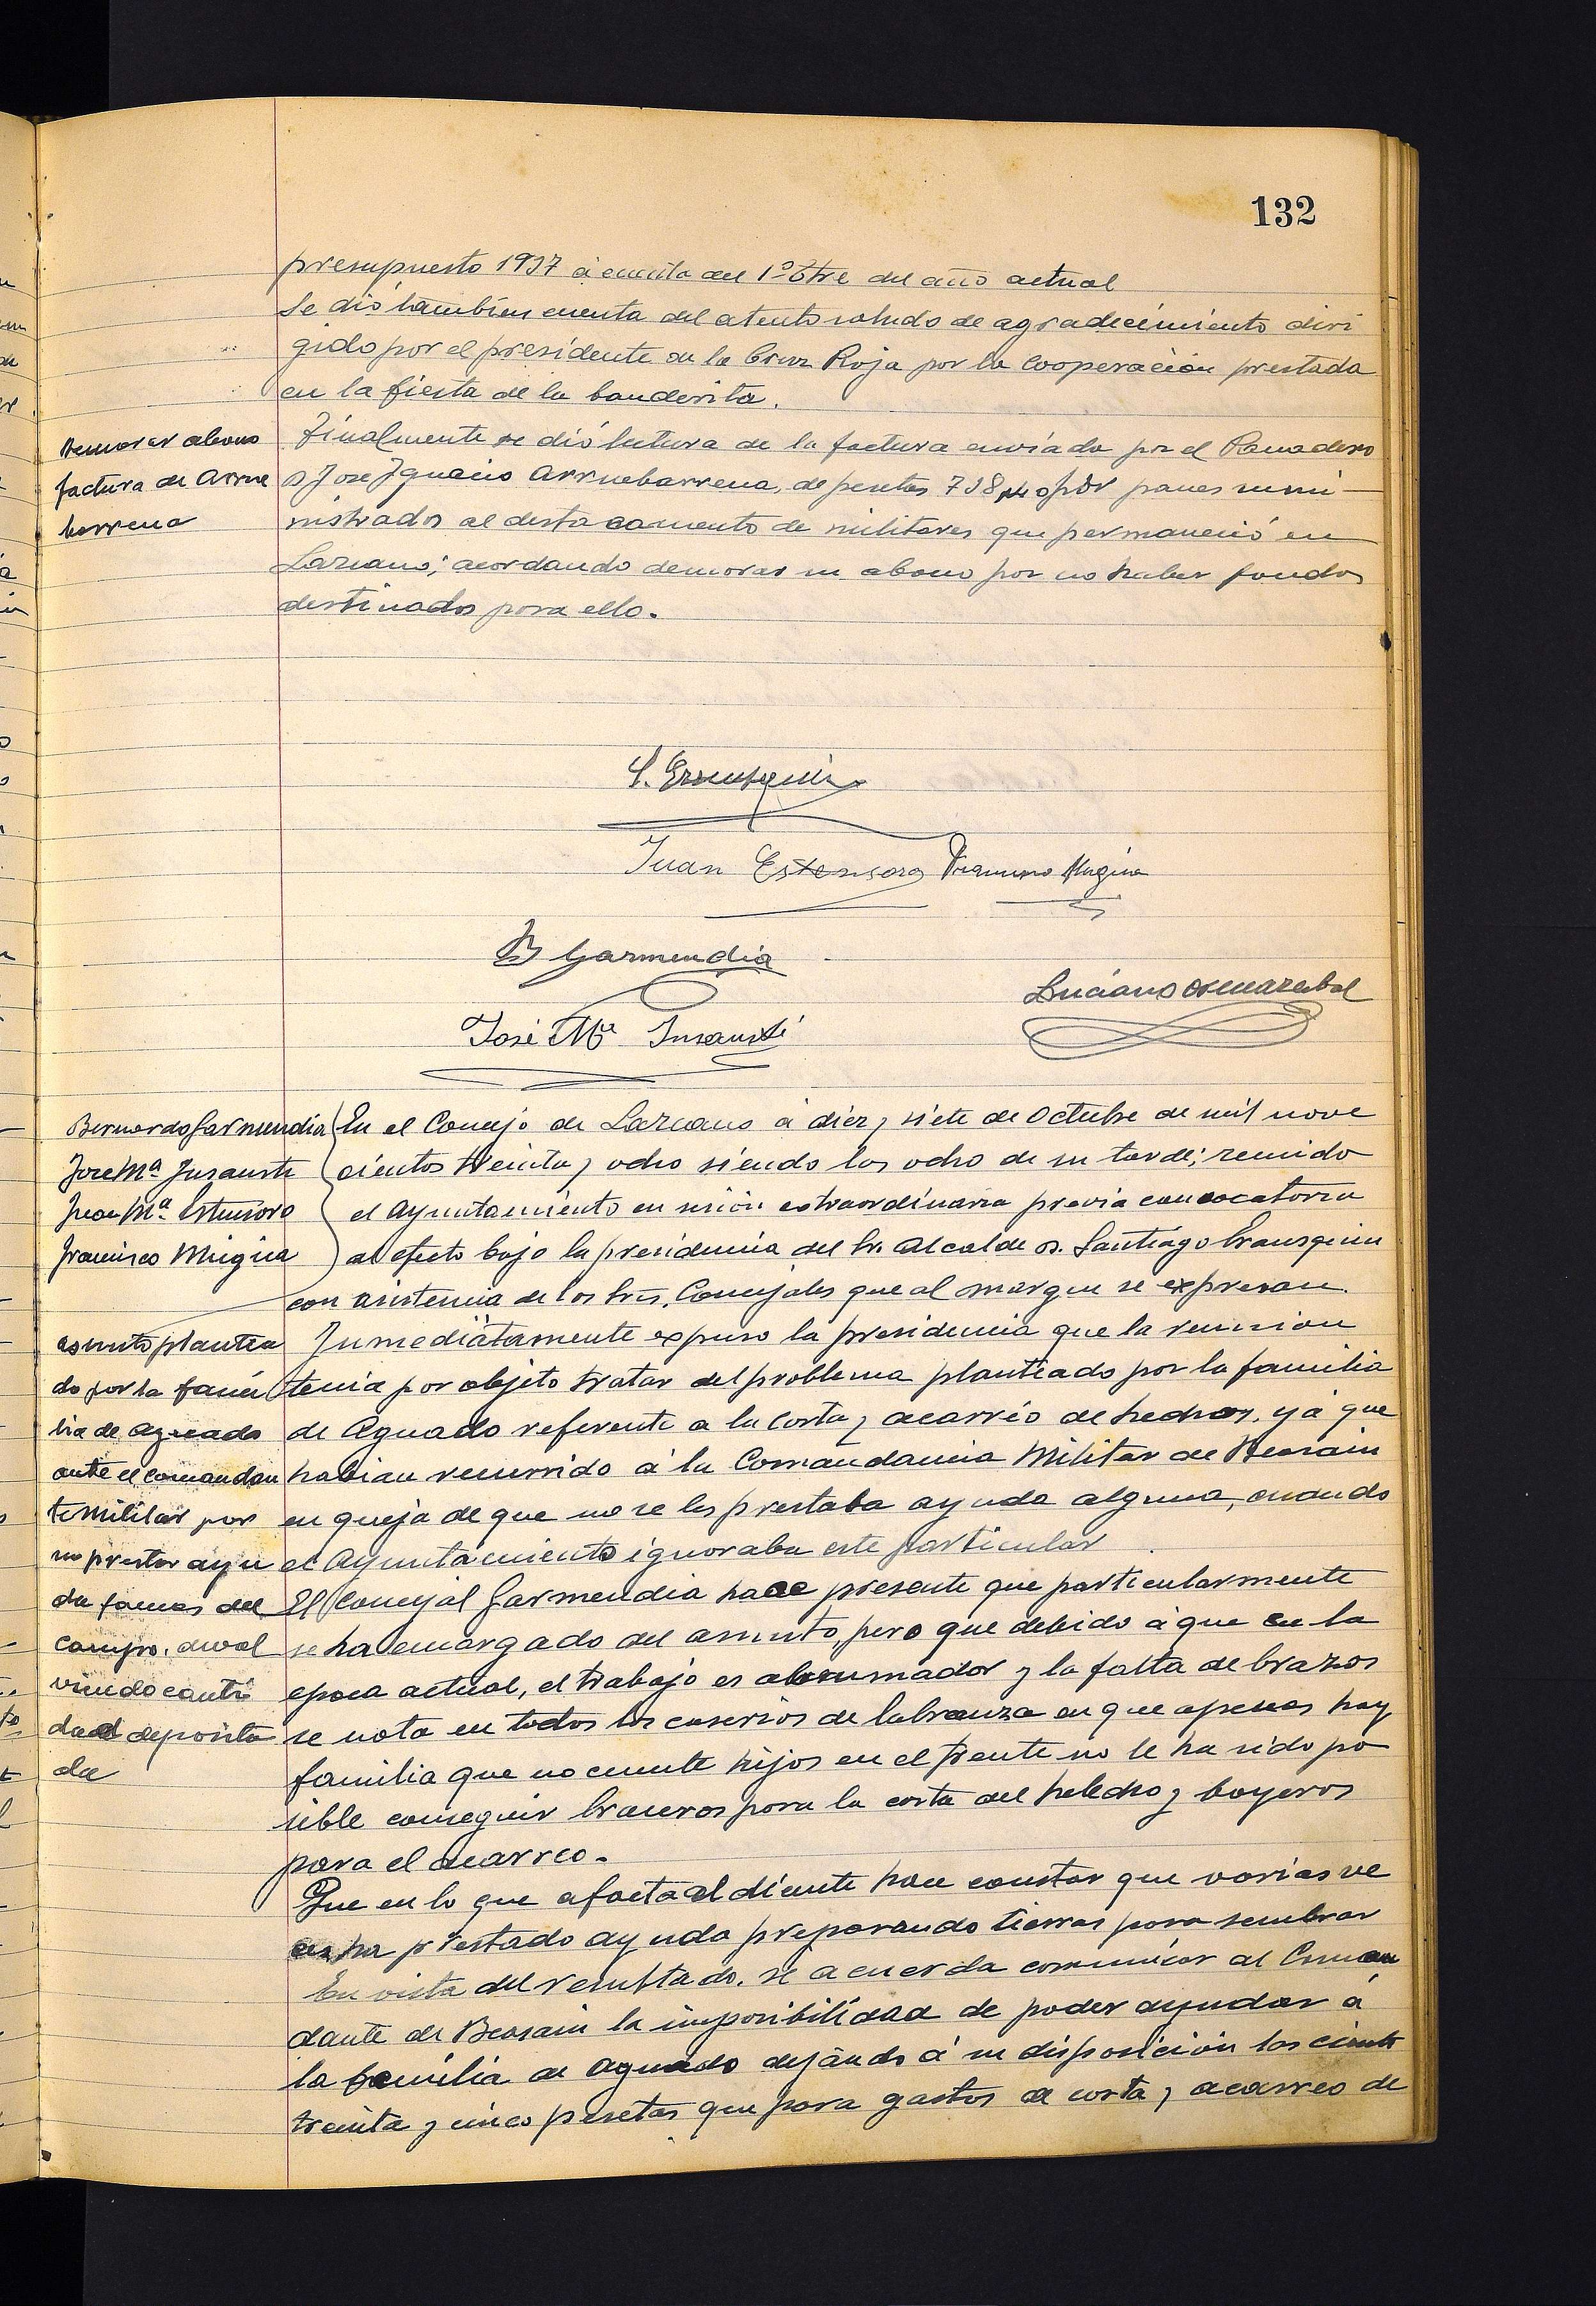 132
presupuesto 1937 á cuenta del 1º Stre del año actual
Se dió tambien cuenta del atento saludo de agradecimiento diri
gido por el presidente de la Cruz Roja por la cooperación prestada
en la fiesta de la banderita.
Demorar abono
factura de Arrue
barrena
Finalmente se dió lectura de la factura enviada por el Panadero
D José Ignacio Arruebarrena, de pesetas 738 por panes sumi-
nistrados al destacamento de militares que permaneció en
Lazcano; acordando demorar su abono por no haber fondos
destinados para ello.
S. Erausquin
Juan Estensoro Francisco Mugica
B Garmendia
Luciano
José Mª Insausti
Bernardo Garmendia
José Mª Insausti
Juan Mª Estensoro
Francisco Mugica
En el Concejo de Lazcano á diez y siete de Octubre de mil nove
cientos treinta y ocho siendo las ocho de su tarde; reunido
el Ayuntamiento en sesión extraordinaria previa convocatoria
al efecto bajo la presidencia del Sr. Alcalde D. Santiago Erausquin
con asistencia de los Srs. Concejales que al margen se expresan.
asunto plantea
do por la fami
lia de Aguado
ante el comandan
te Militar por
no prestar ayu
da faenas del
campo. devol
viendo canti
dad deposita
da
Inmediatamente expuso la presidencia que la reunion
tenia por objeto tratar del problema planteado por la familia
de Aguado referente a la corta y acarreo de hechos, ya que
habian recurrido á la Comandancia Militar de Beasain
en queja de que no se les prestaba ayuda alguna, cuando
el Ayuntamiento ignoraba este particular
El Concejal Garmendia hace presente que particularmente
se ha encargado del asunto, pero que debido á que en la
epoca actual, el trabajo es abrumador y la falta de brazos
se nota en todos los caserios de labranza en que apenas hay
familia que no cuente hijos en el frente no le ha sido po
sible conseguir braceros para la corta del helecho y boyeros
para el acarreo.
Que en lo que afecta al dicente hace constar que varias ve
ces ha prestado ayuda preparando tierras para sembrar
En vista del resultado. se acuerda comunicar al Coman
dante de Beasain la imposibilidad de poder ayudar á
la familia de Aguado dejando á su disposición las ciento
treinta y cinco pesetas que para gastos de corta y acarreo de